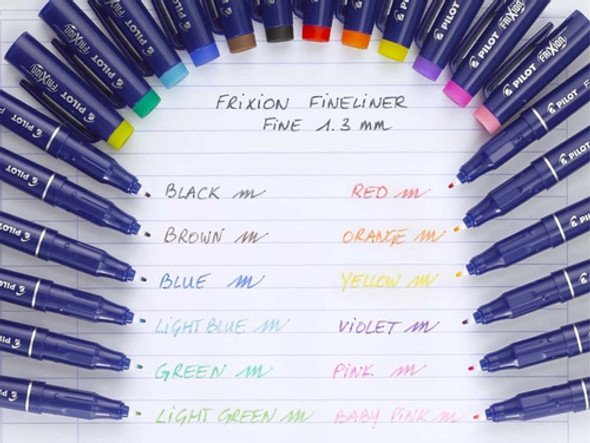 FRIXION FINELINER
FINE 1.3 mm
BLACK
BROWN
BLUE
LIGHT BLUE
GREEN
LIGHT GREEN
RED
ORANGE
YELLOW
VIOLET
PINK
BABY PINK
PILOT FRIXION
PILOT FRIXION
PILOT
PILOT
PILOT
PILOT
PILOT FRIXION
PILOT FRIXION
PILOT
PILOT
PILOT
PILOT
PILOT
PILOT
PILOT